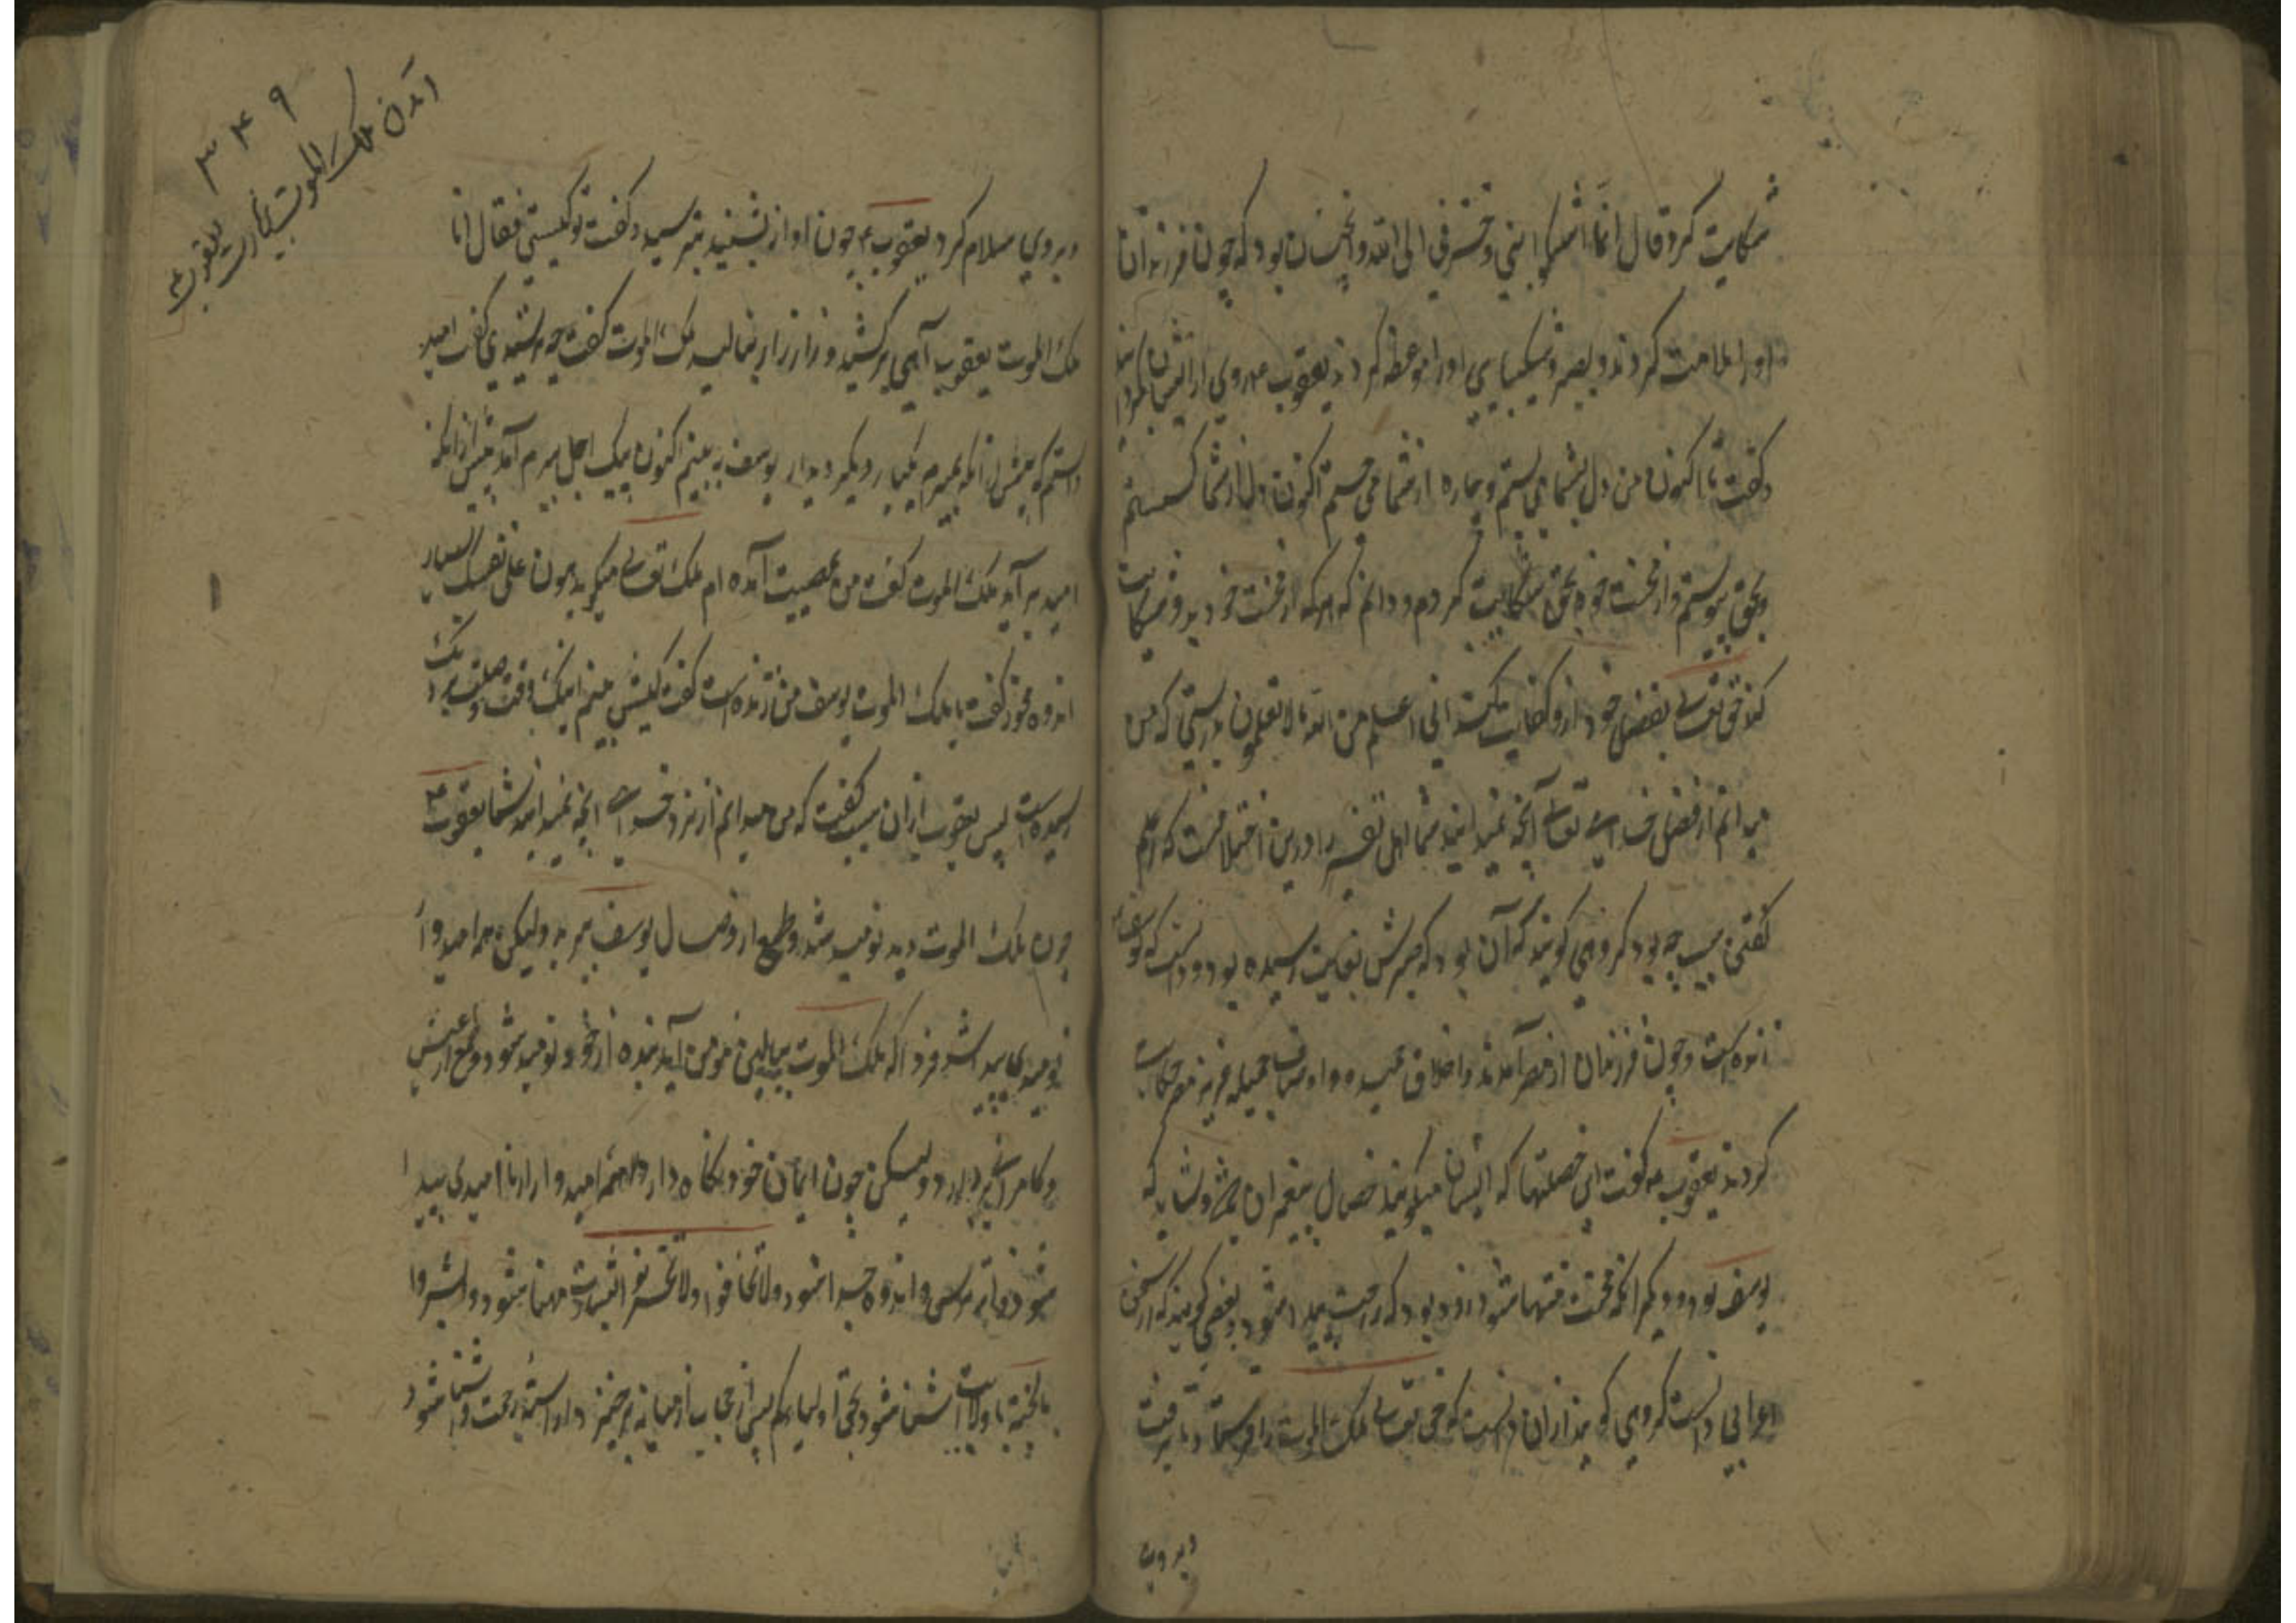 شکایت کرد قال انما اشکوا بثی و حزنی الی الله و انچنان بود که چون فرزندان
او را ملامت کردند و بصبر و شکیبایی او را موعظه کردند یعقوب ع روی از ایشان
و گفت تا اکنون من دل بشما می بستم و چاره از شما می جستم اکنون دل از شما گسستم
و بحق پیوستم و از محنت خود بحق شکایت کردم و دانم که هر که از محنت خود بدو شکایت
کند حق تعالی بفضل خود او را کفایت کند انی اعلم من الله ما لا تعلمون بدرستی که من
میدانم از فضل خدای تعالی آنچه نمیدانید شما اهل تفسیر را درین اختلافست که
گفتن سبب چه بود گروهی گویند که آن بود که صبرش بغایت رسیده بود و دانست که یوسف
زنده است و چون فرزندان از مصر آمدند و اخلاق حمیده و اوصاف جمیله عزیز مصر حکایت
کردند یعقوب ع گفت این خصلتها که ایشان میگویند خصال پیغمبران و نشاید که
یوسف بود و دیگر انکه محنت منتها شود زود بود که رحمت پیدا شود بعضی گویند که از سخن
اعرابی دانست گروهی گویند از ان دانست که حق تعالی ملک الموت را فرستاد تا برفت
و بروی
۳۴۹
آمدن ملک الموت بزیارت یعقوب ع
و بروی سلام کرد یعقوب ع چون آواز بشنید بترسید و گفت تو کیستی فقال انا
ملک الموت یعقوب آهی برکشید و زار زار بنالید ملک الموت گفت چه رسیدی گفت امید
داشتم که پیش از انکه بمیرم یکبار دیگر دیدار یوسف به بینم اکنون پیک اجل بسرم آمد پیش از انکه
امید برآید ملک الموت گفت من آمده ام ملک تعالی میگوید هون علی نفسک بسیار
اندوه مخور گفت یا ملک الموت یوسف من زنده است گفت کیش بینم اینک وقت وصلت نزدیک
رسیده است پس یعقوب از ان سبب گفت که من میدانم از نزد خدای انچه نمیدانید شما یعقوب ع
چون ملک الموت دید نومید شد و طمع از وصال یوسف ببرید ولیکن همه امید
نومیدی پیدا شد فردا که ملک الموت ببالین مومن آید بنده از خود نومید شود و طمع از عیش
و کامرانی بردارد ولیکن چون ایمان خود نگاه دارد همه امید او از نا امیدی پیدا
شود ترسی و اندوه جدا شود و لا تخافوا و لا تحزنوا اشارت مهنا شود و ابشروا
بالجنة با ولایت آشنا شود نحن اولیاءکم پس حجاب از میانه برخیزد و رحمت شود